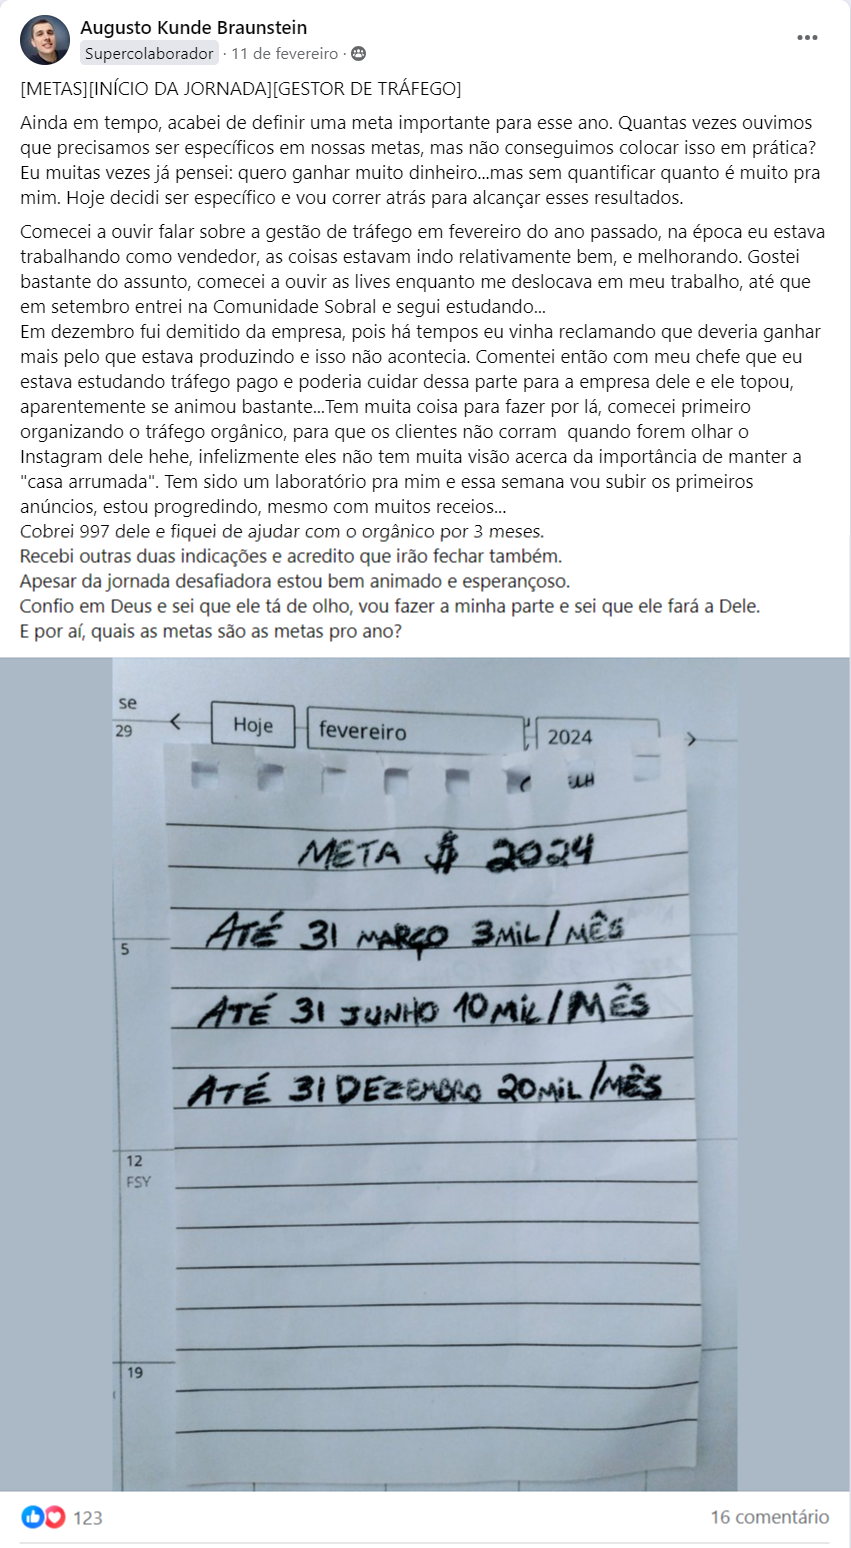 Augusto Kunde Braunstein
Supercolaborador · 11 de fevereiro ·
[METAS][INÍCIO DA JORNADA][GESTOR DE TRÁFEGO]
Ainda em tempo, acabei de definir uma meta importante para esse ano. Quantas vezes ouvimos
que precisamos ser específicos em nossas metas, mas não conseguimos colocar isso em prática?
Eu muitas vezes já pensei: quero ganhar muito dinheiro...mas sem quantificar quanto é muito pra
mim. Hoje decidi ser específico e vou correr atrás para alcançar esses resultados.
Comecei a ouvir falar sobre a gestão de tráfego em fevereiro do ano passado, na época eu estava
trabalhando como vendedor, as coisas estavam indo relativamente bem, e melhorando. Gostei
bastante do assunto, comecei a ouvir as lives enquanto me deslocava em meu trabalho, até que
em setembro entrei na Comunidade Sobral e segui estudando...
Em dezembro fui demitido da empresa, pois há tempos eu vinha reclamando que deveria ganhar
mais pelo que estava produzindo e isso não acontecia. Comentei então com meu chefe que eu
estava estudando tráfego pago e poderia cuidar dessa parte para a empresa dele e ele topou,
aparentemente se animou bastante...Tem muita coisa para fazer por lá, comecei primeiro
organizando o tráfego orgânico, para que os clientes não corram  quando forem olhar o
Instagram dele hehe, infelizmente eles não tem muita visão acerca da importância de manter a
"casa arrumada". Tem sido um laboratório pra mim e essa semana vou subir os primeiros
anúncios, estou progredindo, mesmo com muitos receios...
Cobrei 997 dele e fiquei de ajudar com o orgânico por 3 meses.
Recebi outras duas indicações e acredito que irão fechar também.
Apesar da jornada desafiadora estou bem animado e esperançoso.
Confio em Deus e sei que ele tá de olho, vou fazer a minha parte e sei que ele fará a Dele.
E por aí, quais as metas são as metas pro ano?
se
29
Hoje
fevereiro
2024
META $ 2024
ATÉ 31 MARÇO 3MIL/MÊS
5
ATÉ 31 JUNHO 10MIL/MÊS
ATÉ 31 DEZEMBRO 20MIL/MÊS
12
FSY
19
123
16 comentário